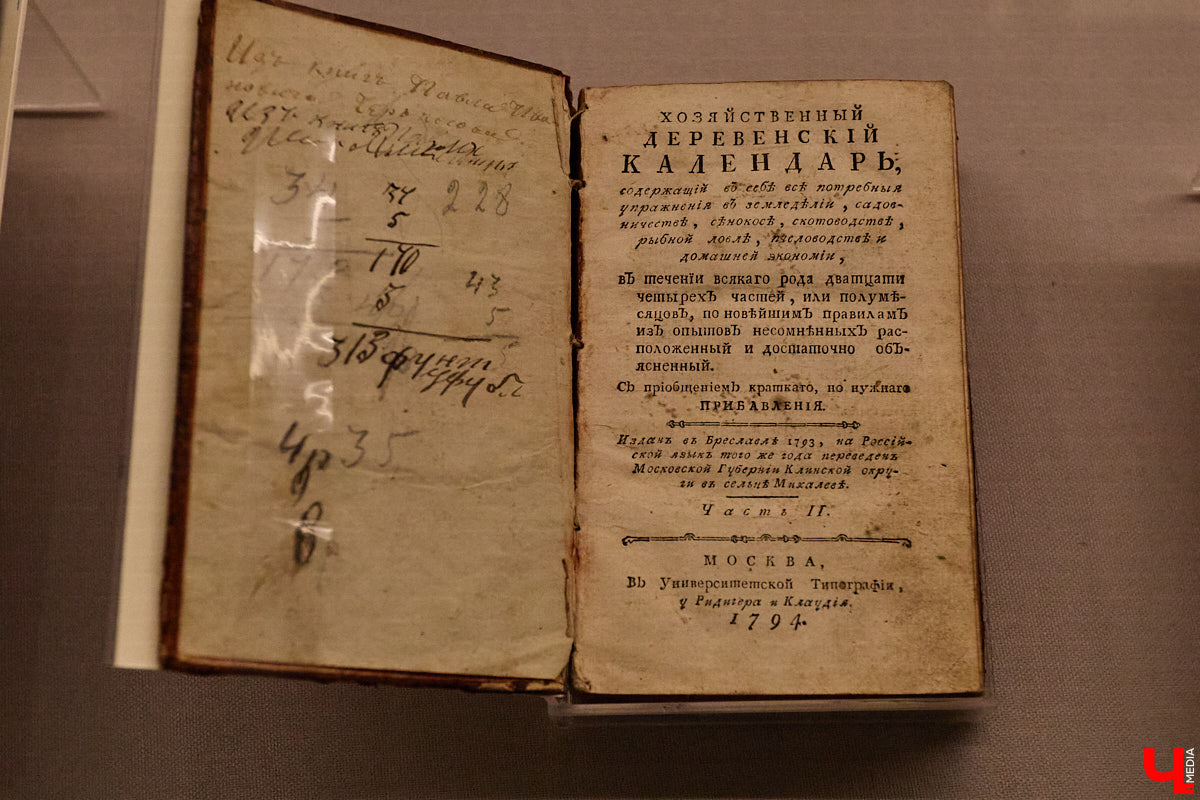 Изъ книгъ Павла Ива
новича
34 34 228
5
170
43
5 5
313 фунт
4р 35
ХОЗЯЙСТВЕННЫЙ
ДЕРЕВЕНСКІЙ
КАЛЕНДАРЬ,
содержащій въ себѣ всѣ потребныя
упражненія въ земледѣліи, садов-
ничествѣ, сѣнокосѣ, скотоводствѣ,
рыбной ловлѣ, пчеловодствѣ и
домашней экономіи,
въ теченіи всякаго рода дватцати
четырехъ частей, или полумѣ-
сяцовъ, по новѣйшимъ правиламъ
изъ опытовъ несомнѣнныхъ рас-
положенный и достаточно объ-
ясненный.
Съ пріобщеніемъ краткаго, но нужнаго
ПРИБАВЛЕНІЯ.
Изданъ въ Бреславлѣ 1793, на Россій-
ской языкъ того же года переведенъ
Московской Губерніи Клинской окру-
ги въ сельцѣ Михалевѣ.
Часть II.
МОСКВА,
Въ Университетской Типографіи,
у Ридигера и Клаудія.
1794.
Ч MEDIA